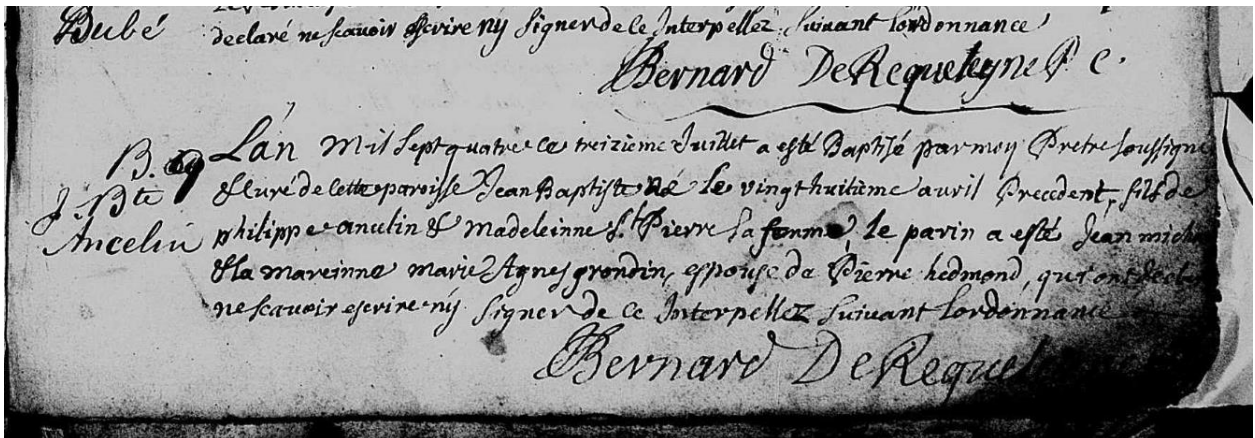 Dubé
declaré ne scavoir escrire ny signer de ce Interpellez suivant lordonnance
Bernard DeRequeleyne P c.
B. 69
J. Bte
Ancelin
Lan mil sept quatre ce treizieme Juillet a esté Baptisé par moy Pretre soussigne
& curé de cette paroisse Jean Baptiste né le vingt huitieme avril Precedent, fils de
philippe anculin & madeleinne St. Pierre sa femme, le parin a esté Jean micha
& la mareinne marie Agnes grondin, espouse de Pierre hedmond, qui ont decla
ne scavoir escrire ny signer de ce Interpellez suivant lordonnance
Bernard DeRequel